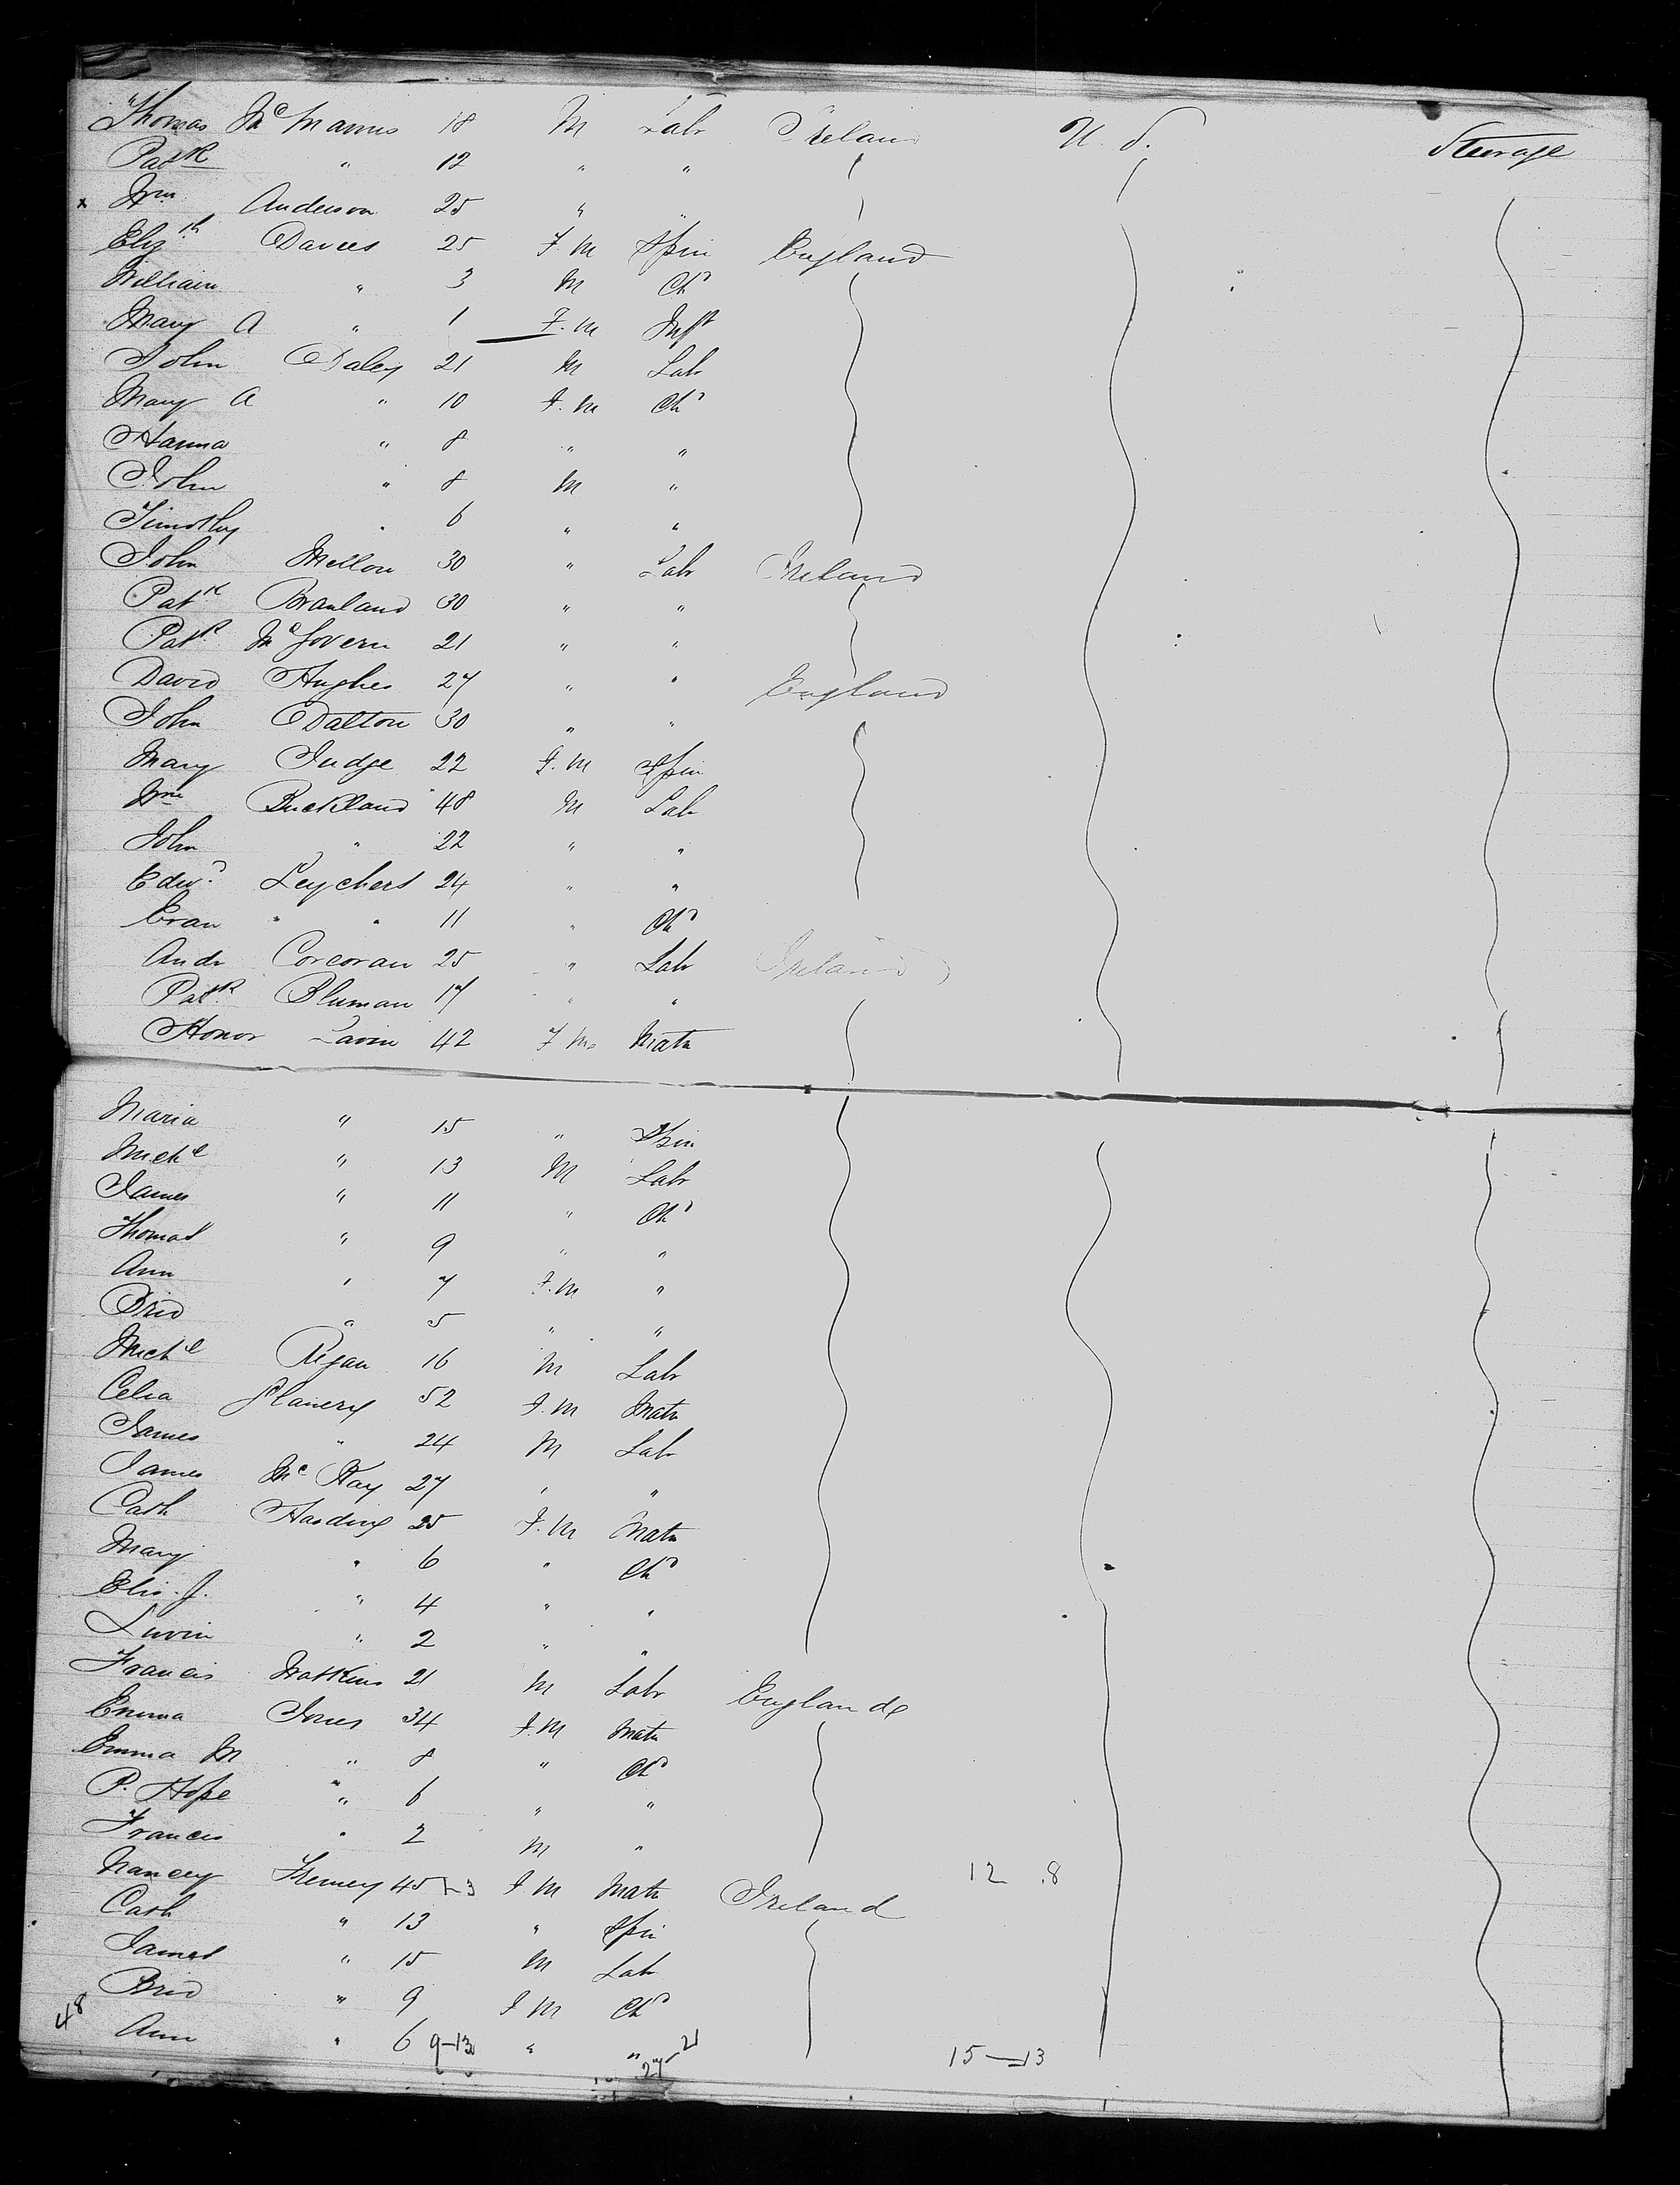 Thomas Mc Manus 18 M Labr Ireland U. S. Steerage
Patk " 12 " "
x Wm Anderson 25 " "
Elizth Davies 25 F. M Spin England
William " 3 M Chd
Mary A " 1 F. M Inft
John Daley 21 M Labr
Mary A " 10 F. M Chd
Hanna " 8 " "
John " 8 M "
Timothy " 6 " "
John Mellon 30 " Labr Ireland
Patk Branland 30 " "
Patk McGovern 21 " "
David Hughes 27 " " England
John Dalton 30 " "
Mary Judge 22 F. M Spin
Wm Buckland 48 M Labr
John " 22 " "
Edwd Leychert 24 " "
Evan " " 11 " Chd
Andr Corcoran 25 " Labr Ireland
Patk Bluman 17 " "
Honor Lavin 42 F M. Matn
Maria " 15 " Spin
Michl " 13 M Labr
James " 11 " Chd
Thomas " 9 " "
Ann " 7 F. M "
Brid " 5 " "
Michl Regan 16 M Labr
Celia Flanery 52 F. M Matn
James " 24 M Labr
James Mc Kay 27 " "
Cath Harding 25 F. M Matn
Mary " 6 " Chd
Elis. J. " 4 " "
" 2 " "
Francis Watkins 21 M Labr England
Emma Jones 34 F. M Matn
Emma M " 8 " Chd
P. Hope " 6 " "
Frances " 2 M "
Nancey 45 F M Matn Ireland 12 .8
Cath " 13 " Spin
James " 15 M Labr
Brid " 9 F M Chd
48 Ann " 6 9-13 " " 27-21 15-13